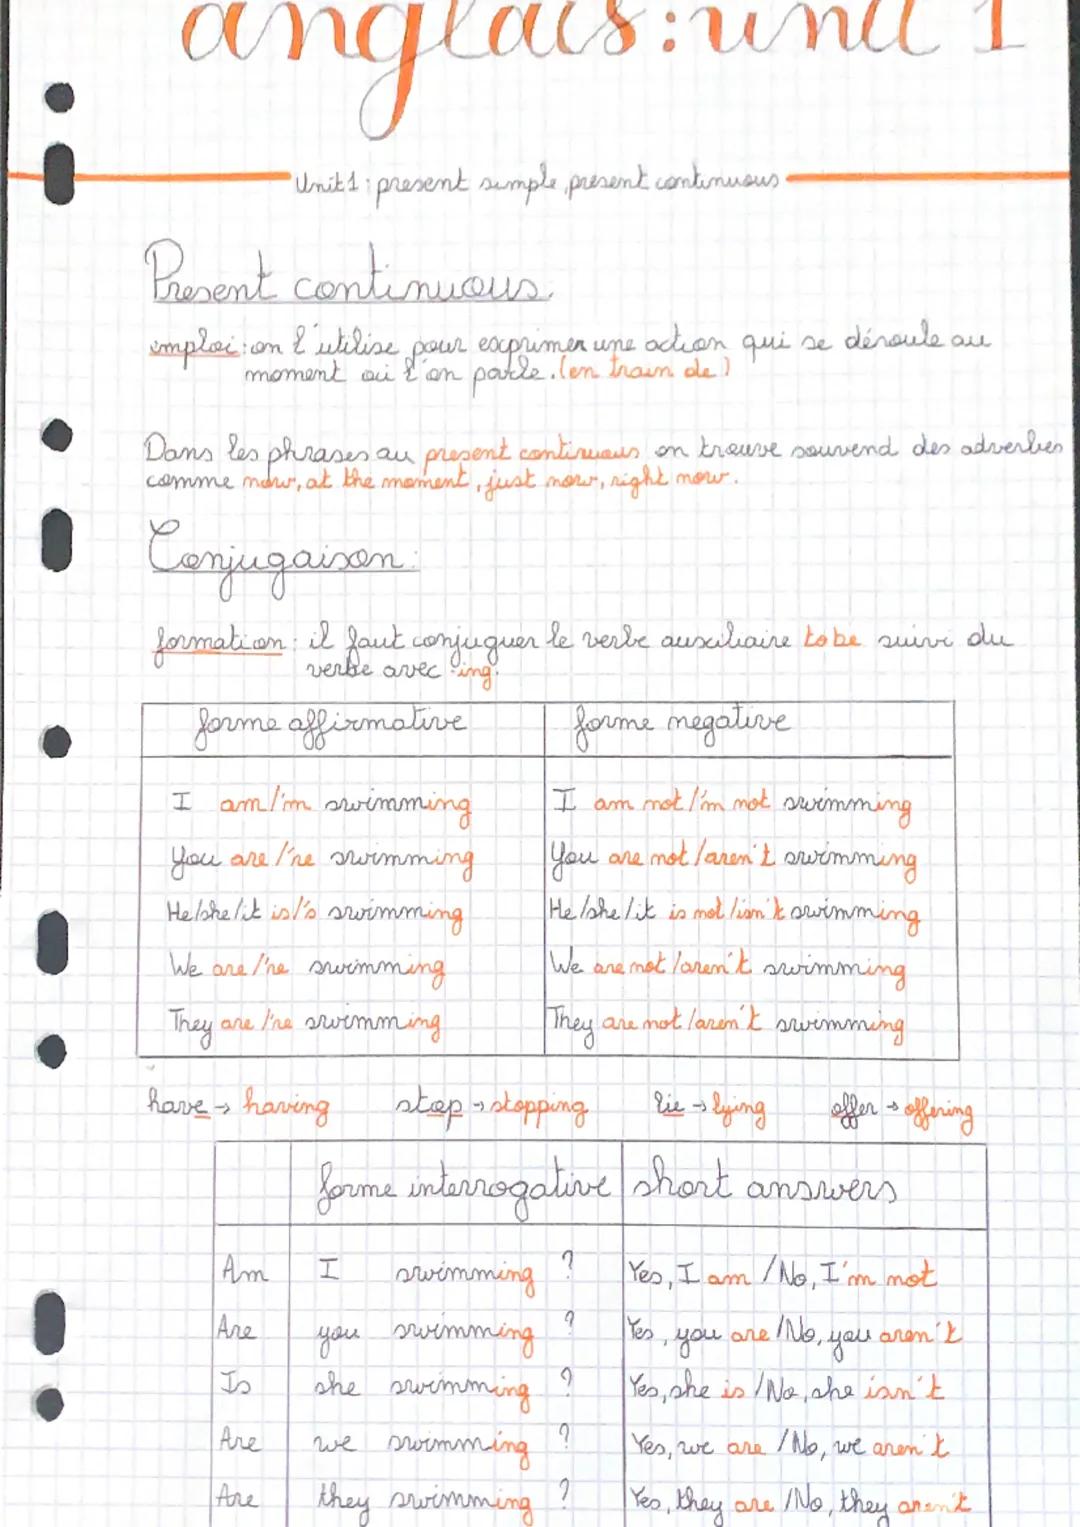 anglais: unit 1
Unit 1 : present simple, present continuous
Present continuous:
emploi : on l'utilise pour exprimer une action qui se déroule au
moment où l'on parle. (en train de)
Dans les phrases au present continuous on trouve souvend des adverbes
comme now, at the moment, just now, right now.
Conjugaison:
formation : il faut conjuguer le verbe auxiliaire to be suivi du
verbe avec -ing.
forme affirmative forme negative
I am/'m swimming I am not /'m not swimming
You are /'re swimming You are not /aren't swimming
He/she/it is/'s swimming He/she/it is not /isn't swimming
We are /'re swimming We are not /aren't swimming
They are /'re swimming They are not /aren't swimming
have → having stop → stopping lie → lying offer → offering
forme interrogative short answers
Am I swimming ? Yes, I am / No, I'm not
Are you swimming ? Yes, you are / No, you aren't
Is she swimming ? Yes, she is / No, she isn't
Are we swimming ? Yes, we are / No, we aren't
Are they swimming ? Yes, they are / No, they aren't